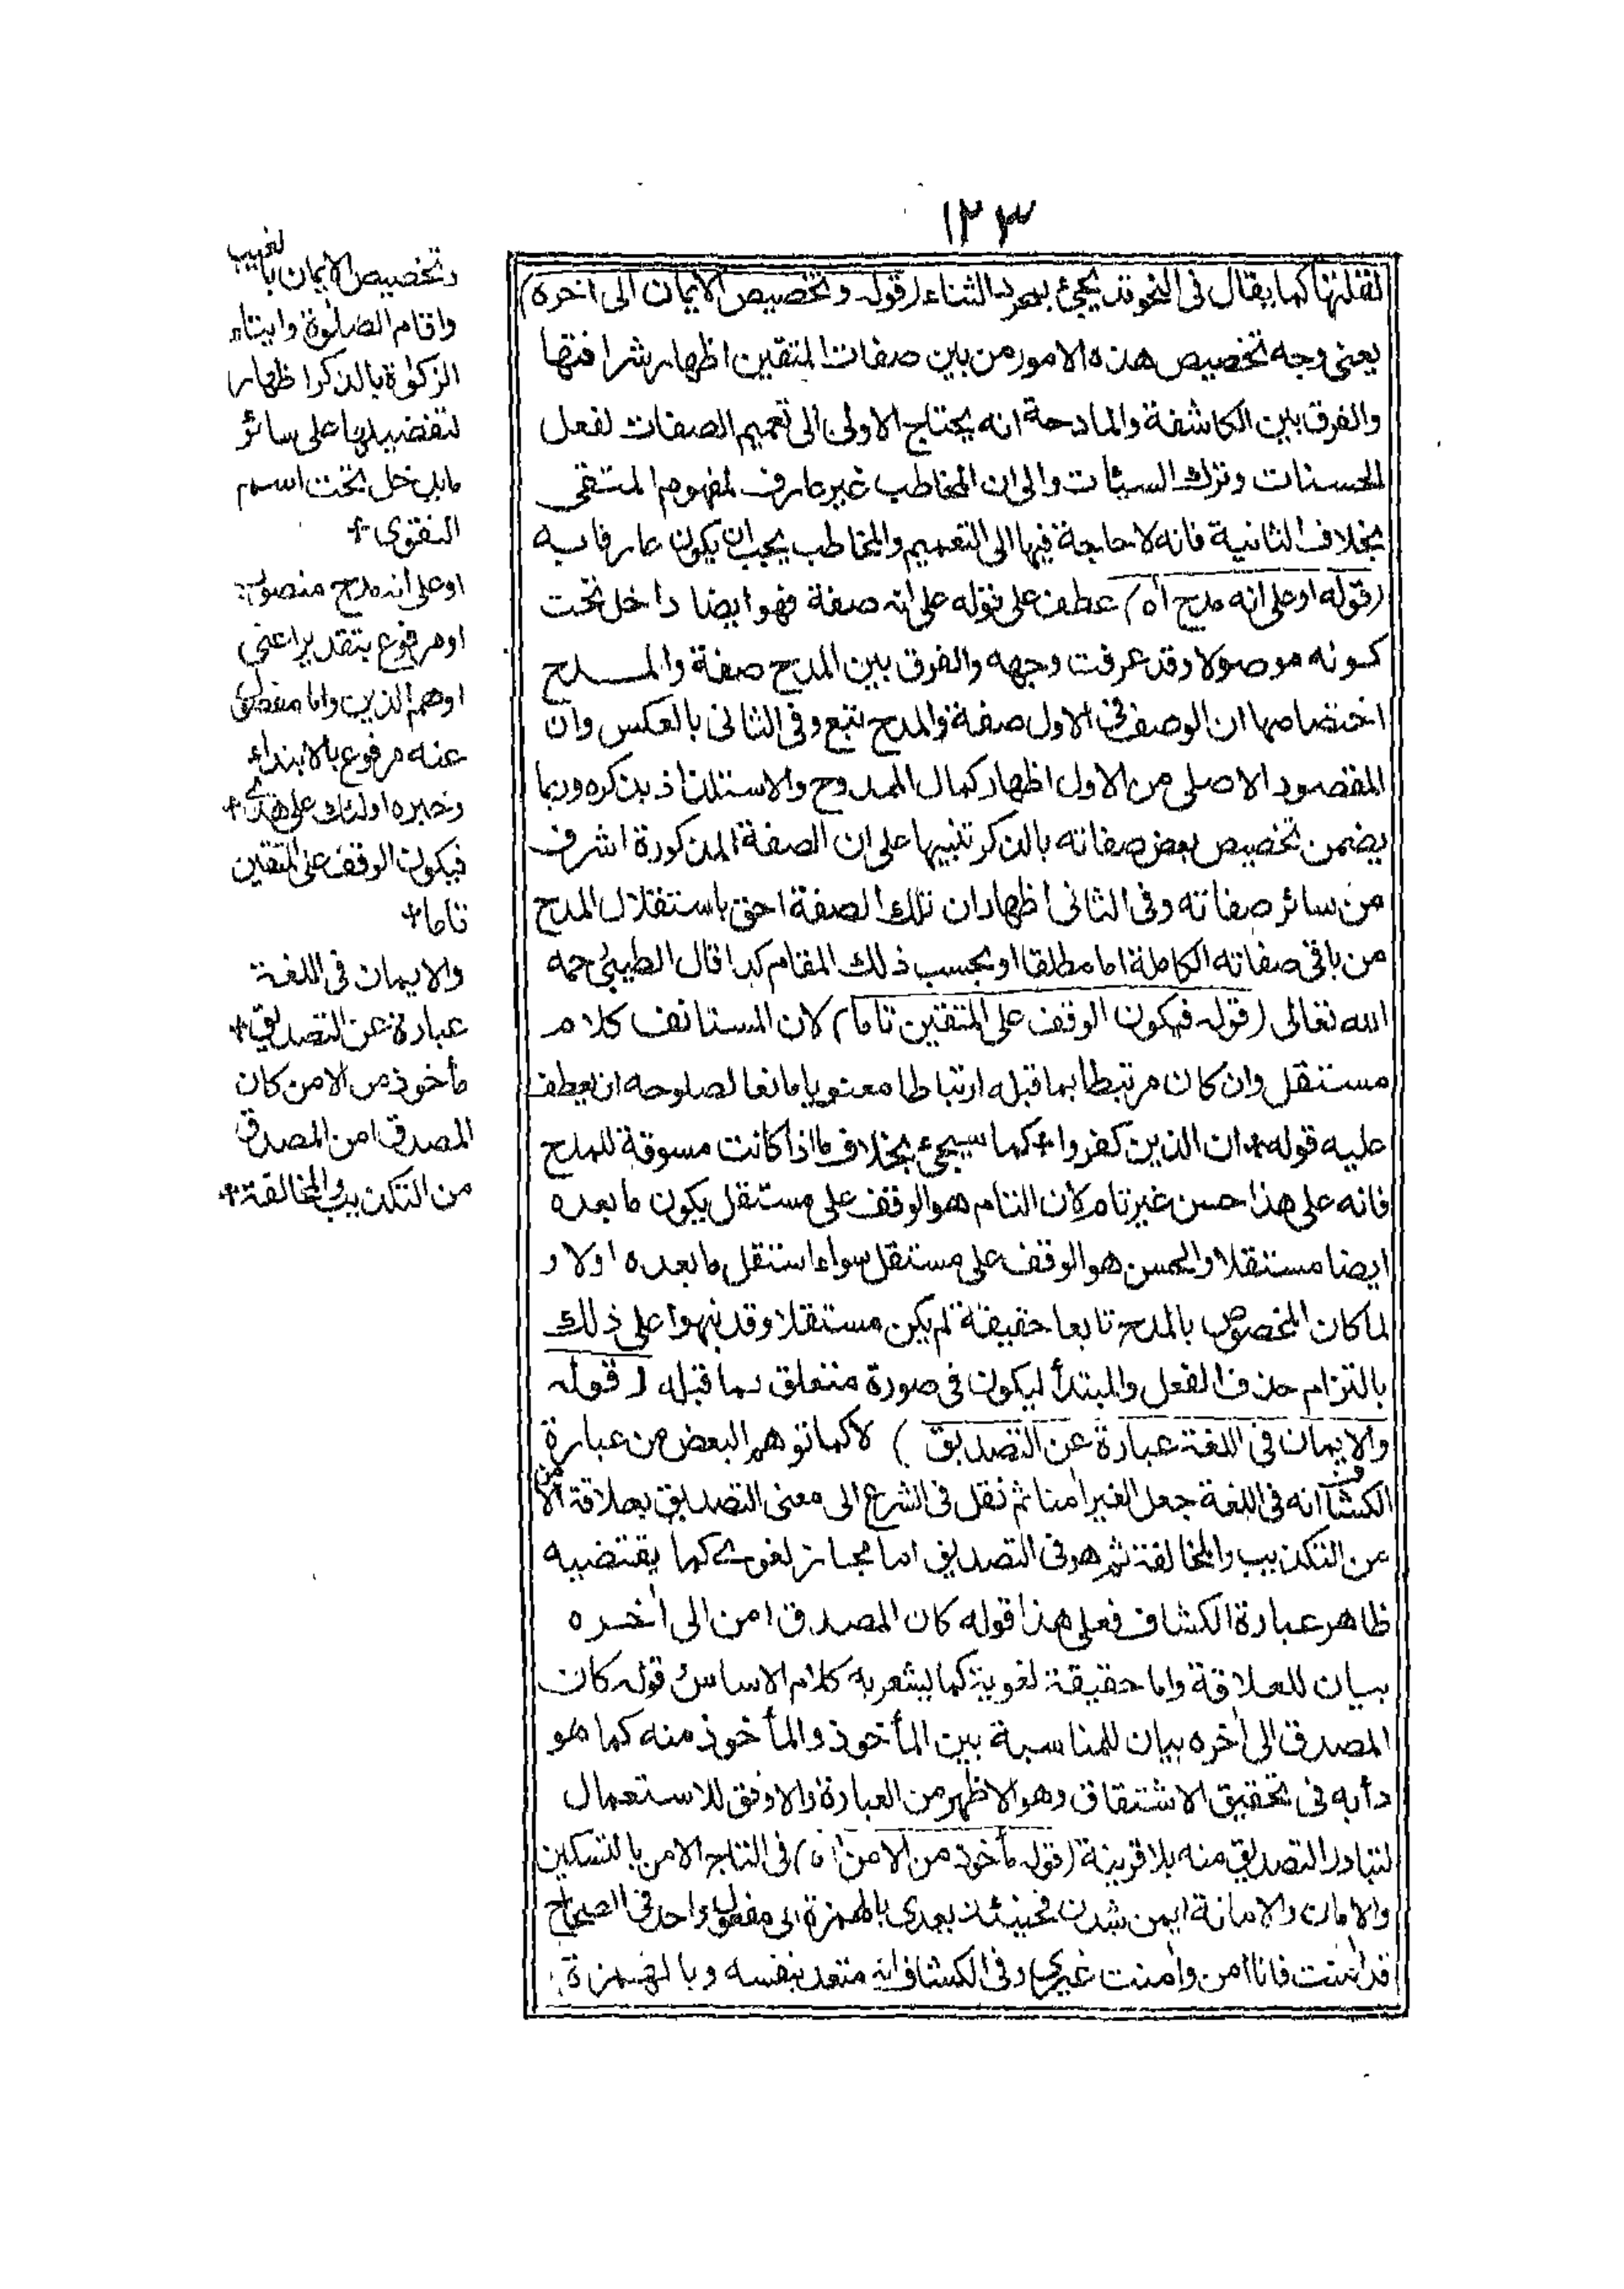 ١٢٣
لقلتها كما يقال فى النحو قد يجئ لمجرد الثناء (قوله وتخصيص الايمان الى اخره)
يعنى وجه تخصيص هذه الامور من بين صفات المتقين اظهار شرافتها
والفرق بين الكاشفة والمادحة انه يحتاج الاولى الى تعميم الصفات لفعل
الحسنات وترك السيئات والى ان المخاطب غير عارف لمفهوم المتقى
بخلاف الثانية فانه لا حاجة فيها الى التعميم والمخاطب يجب ان يكون عارفا به
(قوله او على انه مدح اه) عطف على قوله على انه صفة فهو ايضا داخل تحت
كونه موصولا وقد عرفت وجهه والفرق بين المدح صفة والمدح
اختصاصها ان الوصف فى الاول صفة والمدح تبع وفى الثانى بالعكس وان
المقصود الاصلى من الاول اظهار كمال الممدوح والاستلذاذ بذكره وربما
يضمن تخصيص بعض صفاته بالذكر تنبيها على ان الصفة المذكورة اشرف
من سائر صفاته وفى الثانى اظهار ان تلك الصفة احق باستقلال المدح
من باقى صفاته الكاملة اما مطلقا او بحسب ذلك المقام كذا قال الطيبى رحمه
الله تعالى (قوله فيكون الوقف على المتقين تاما) لان المستانف كلام
مستقل وان كان مرتبطا بما قبله ارتباطا معنويا مانعا لصلوحه ان يعطف
عليه قوله + ان الذين كفروا + كما سيجئ بخلاف ما اذا كانت مسوقة للمدح
فانه على هذا حسن غير تام لان التام هو الوقف على مستقل يكون ما بعده
ايضا مستقلا والحسن هو الوقف على مستقل سواء استقل ما بعده اولا و
لما كان المخصوص بالمدح تابعا حقيقة لم يكن مستقلا وقد نبهوا على ذلك
بالتزام حذف الفعل والمبتدأ ليكون فى صورة متعلق بما قبله (قوله
والايمان فى اللغة عبارة عن التصديق) لا كما توهم البعض من عبارة
الكشاف انه فى اللغة جعل الغير امنا ثم نقل فى الشرع الى معنى التصديق بعلاقة الامن
عن التكذيب والمخالفة ثم هو فى التصديق اما مجاز لغوى كما يقتضيه
ظاهر عبارة الكشاف فعلى هذا قوله كان المصدق امن الى اخره
بيان للعلاقة واما حقيقة لغوية كما يشعر به كلام الاساس قوله كان
المصدق الى اخره بيان للمناسبة بين المأخوذ والمأخوذ منه كما هو
دأبه فى تحقيق الاشتقاق وهو الاظهر من العبارة والاوفق للاستعمال
لتبادر التصديق منه بلا قرينة (قوله مأخوذ من الامن اه) فى التاج الامن بالتسكين
والامان والامانة ايمن شدن فحينئذ يعدى بالهمزة الى مفعول واحد فى الصحاح
قد امنت فانا امن وامنت غيرى وفى الكشاف انه متعد بنفسه وبالهمزة
وتخصيص الايمان بالغيب
واقام الصلوة وايتاء
الزكوة بالذكر اظهار
لتفضيلها على سائر
ما يدخل تحت اسم
التقوى +
او على انه مدح منصوب
او مرفوع بتقدير اعنى
او هم الذين واما مفصول
عنه مرفوع بالابتداء
وخبره اولئك على هدى +
فيكون الوقف على المتقين
تاما +
والايمان فى اللغة
عبارة عن التصديق +
مأخوذ من الامن كان
المصدق امن المصدق
من التكذيب والمخالفة +